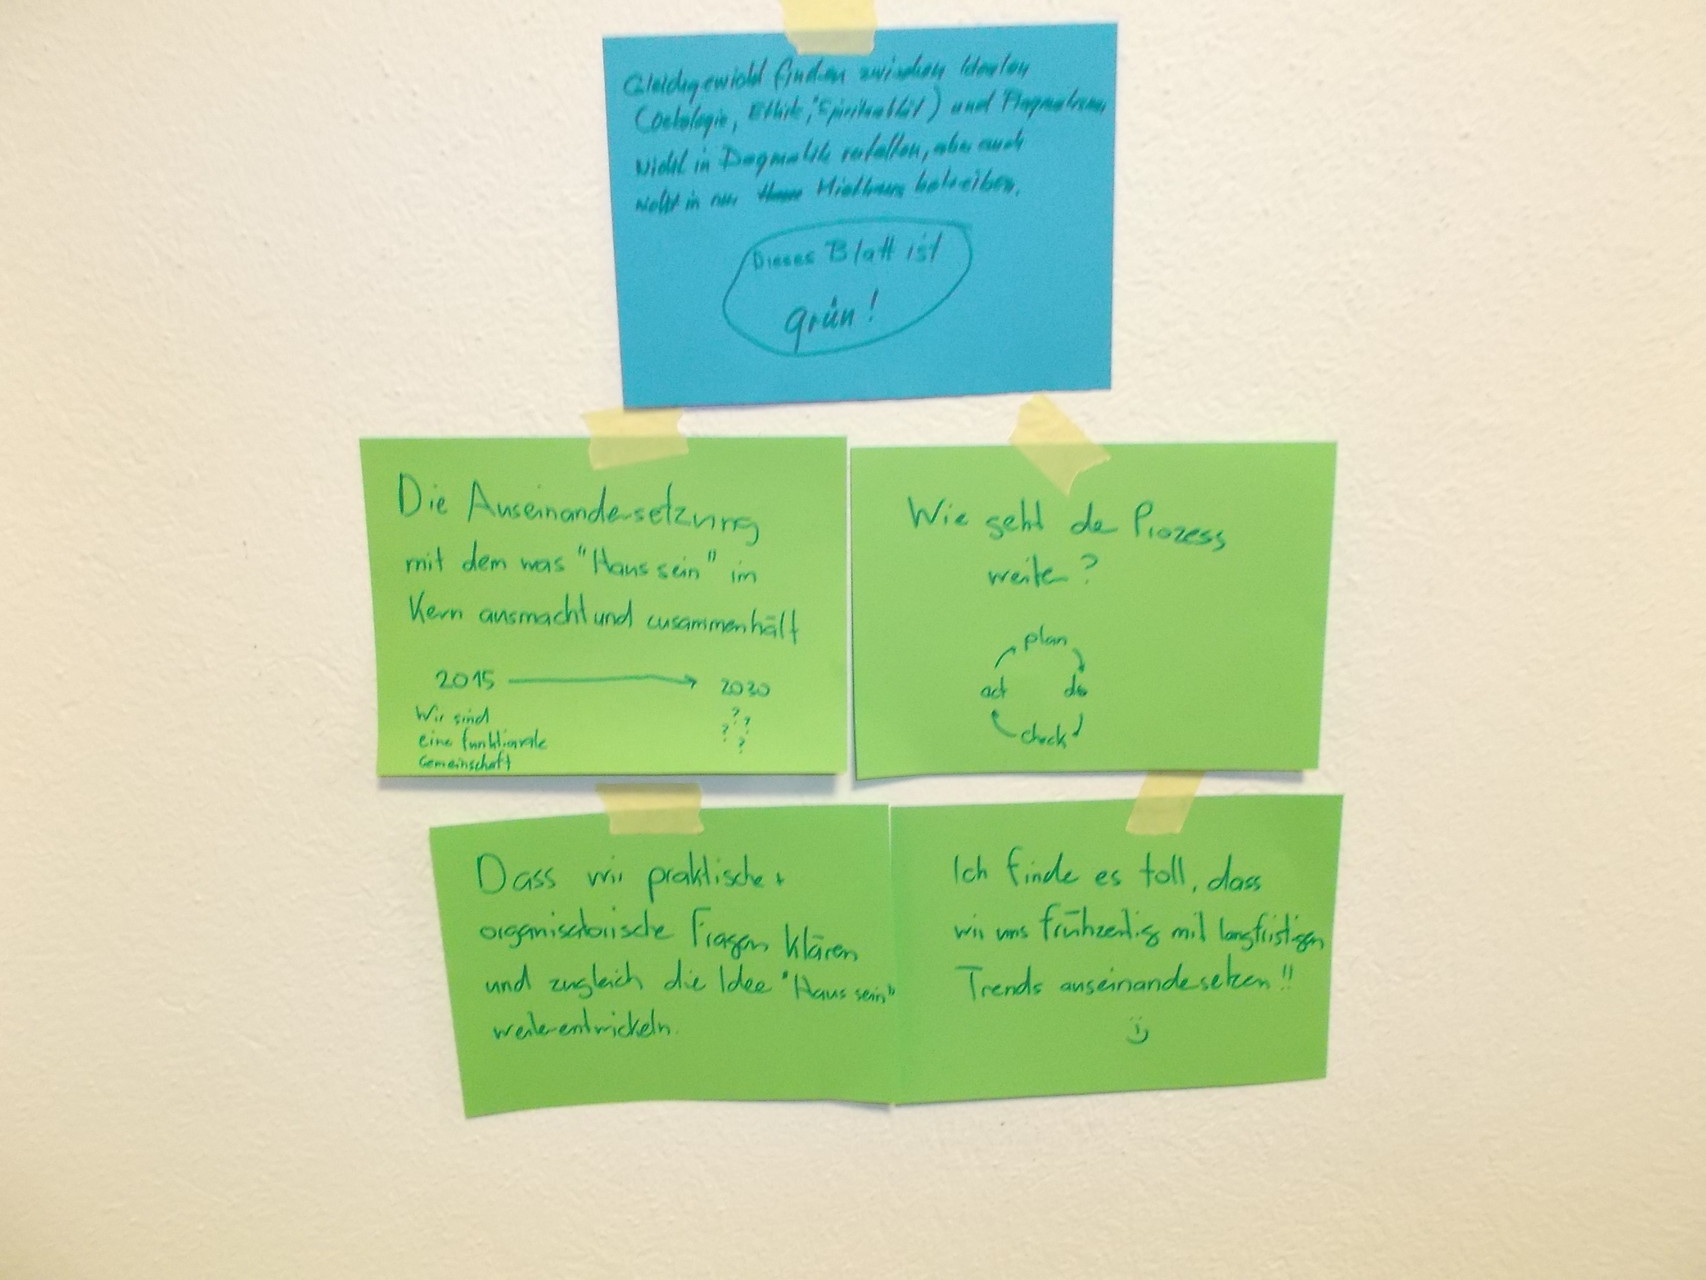 Gleichgewicht finden zwischen Idealen
(Oekologie, Ethik, "Spiritualität") und Pragmatismus
Nicht in Dogmatik verfallen, aber auch
nicht in nur Miethaus betreiben.
Dieses Blatt ist
grün!
Die Auseinandersetzung
mit dem was "Haus sein" im
Kern ausmacht und zusammenhält
2015 → 2030
Wir sind
eine funktionale
Gemeinschaft
? ?
? ?
Wie geht der Prozess
weiter?
plan
act do
check
Dass wir praktische +
organisatorische Fragen klären
und zugleich die Idee "Haus sein"
weiterentwickeln.
Ich finde es toll, dass
wir uns frühzeitig mit langfristigen
Trends auseinandersetzen!!
:)